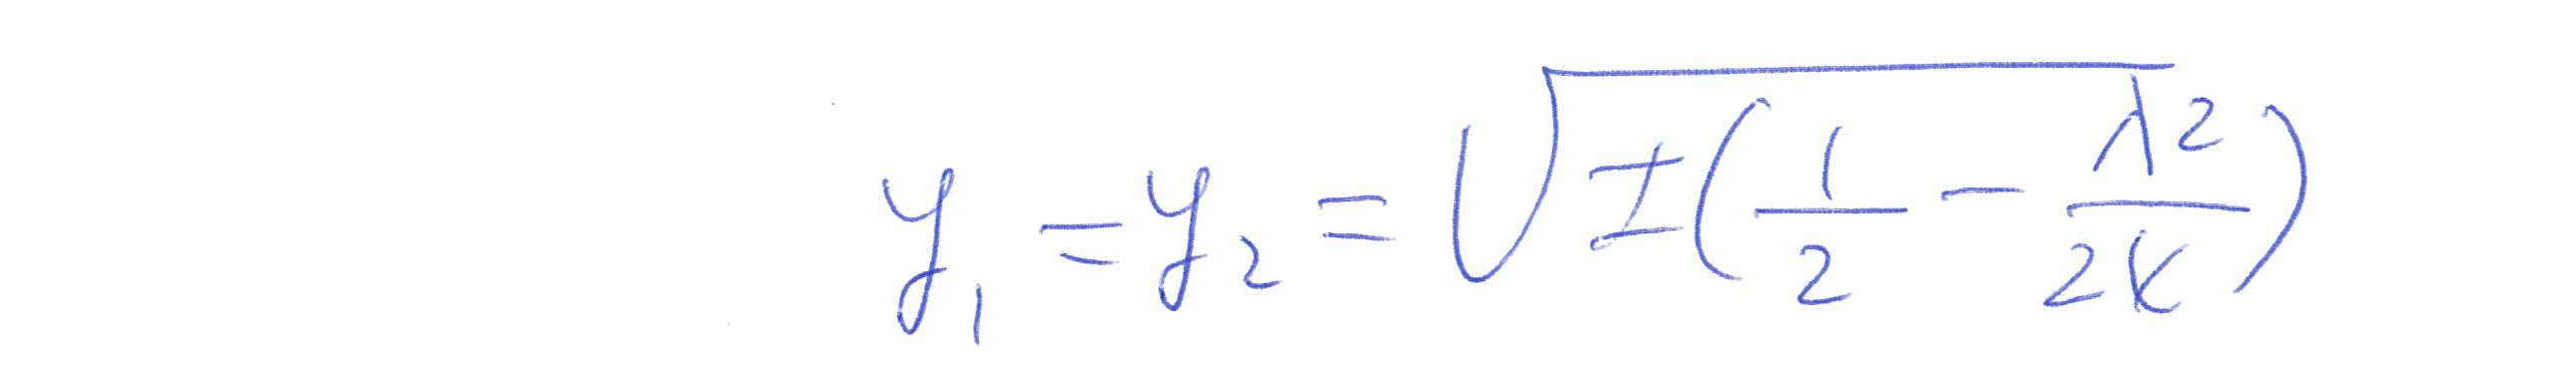 y₁ = y₂ = √(±(1/2 − λ²/2K))